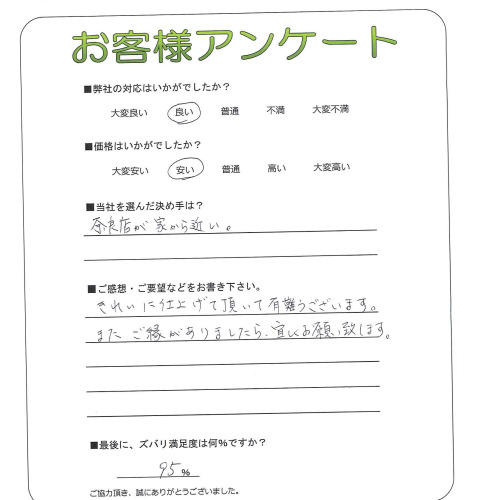 お客様アンケート
■弊社の対応はいかがでしたか？
大変良い 良い 普通 不満 大変不満
■価格はいかがでしたか？
大変安い 安い 普通 高い 大変高い
■当社を選んだ決め手は？
奈良店が家から近い。
■ご感想・ご要望などをお書き下さい。
きれいに仕上げて頂いて有難うございます。
またご縁がありましたら、宜しくお願い致します。
■最後に、ズバリ満足度は何％ですか？
95％
ご協力頂き、誠にありがとうございました。